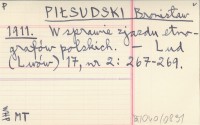 P
PIŁSUDSKI Bronisław
1911. W sprawie zjazdu etno-
grafów polskich. – Lud
(Lwów) 17, nr 2: 267-269.
MT